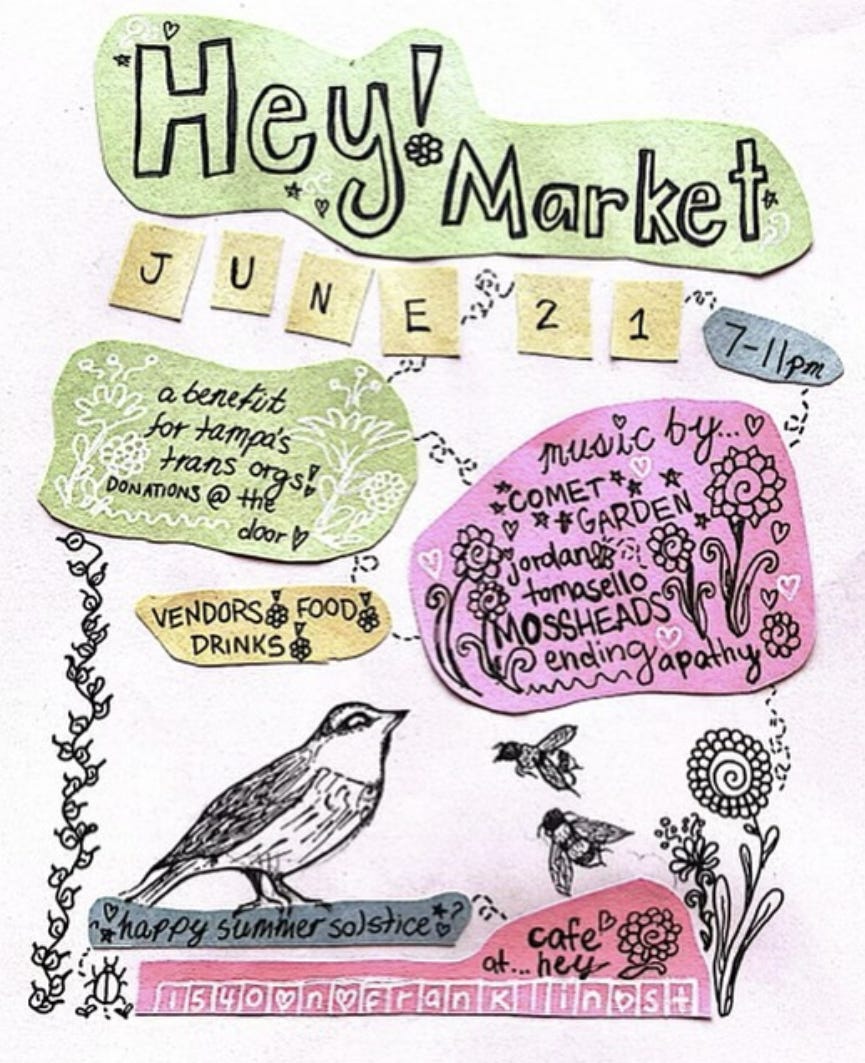 Hey!
Market
JUNE 21
7-11pm
a benefit
for tampa's
trans orgs!
DONATIONS @ the
door
music by...
COMET
GARDEN
jordan
tomasello
MOSSHEADS
ending apathy
VENDORS! FOOD!
DRINKS!
happy summer solstice
cafe
at... hey
1540 n franklin st